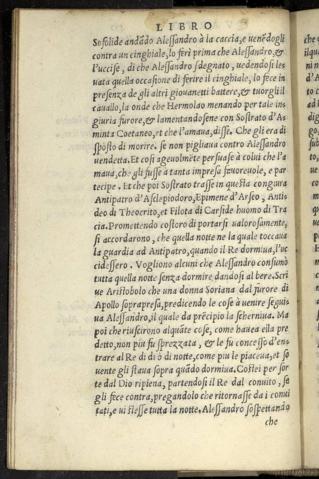 LIBRO
Sofolide andãdo Alessandro à la caccia, e venẽdogli
contra un cinghiale, lo ferì prima che Alessandro, &
l'uccise, di che Alessandro sdegnato, uedendosi les
uata quella occasione di ferire il cinghiale, lo fece in
presenza de gli altri giouanetti battere, & tuorgli il
cauallo, la onde che Hermolao menando per tale in
giuria furore, & lamentandosene con Sostrato d'As
minta Coetaneo, et che l'amaua, disse. Che gli era di
spósto di morire, se non pigliaua contro Alessandro
uendetta. Et cosi ageuolmẽte persuase à colui che l'a
maua, che gli fusse a tanta impresa fauoreuole, e par
tecipe. Et che poi Sostrato trasse in questa congiura
Antipatro d'Asclepiodoro, Epimene d'Arseo, Antis
deo di Theocrito, et Filota di Carside huomo di Tra
cia. Promettendo costoro di portarsi ualorosamente,
si accordarono, che quella notte ne la quale toccaua
la guardia ad Antipatro, quando il Re dormiua, l'uc
cidessero. Vogliono alcuni che Alessandro consumò
tutta quella notte senza dormire dandosi al bere. Scri
ue Aristobolo che una donna Soriana dal furore di
Apollo soprapresa, predicendo le cose à uenire seguis
ua Alessandro, il quale da prĩcipio la scherniua. Ma
poi che riuscirono alquãte cose, come hauea ella pre
detto, non più fu sprezzata, & le fu concesso d'en
trare al Re di dì ò di notte, come piu le piaceua, et so
uente gli staua sopra quãdo dormiua. Costei per sor
te dal Dio ripiena, partendosi il Re dal conuito, se
gli fece contra, pregandolo che ritornasse da i conui
tati, e ui stesse tutta la notte. Alessandro sospettando
che